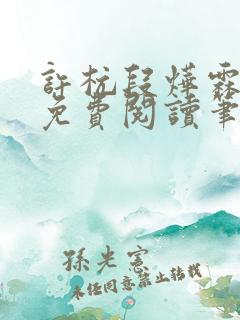 許杭段燁霖
免費閱讀筆
孫光憲
未經同意禁止轉載